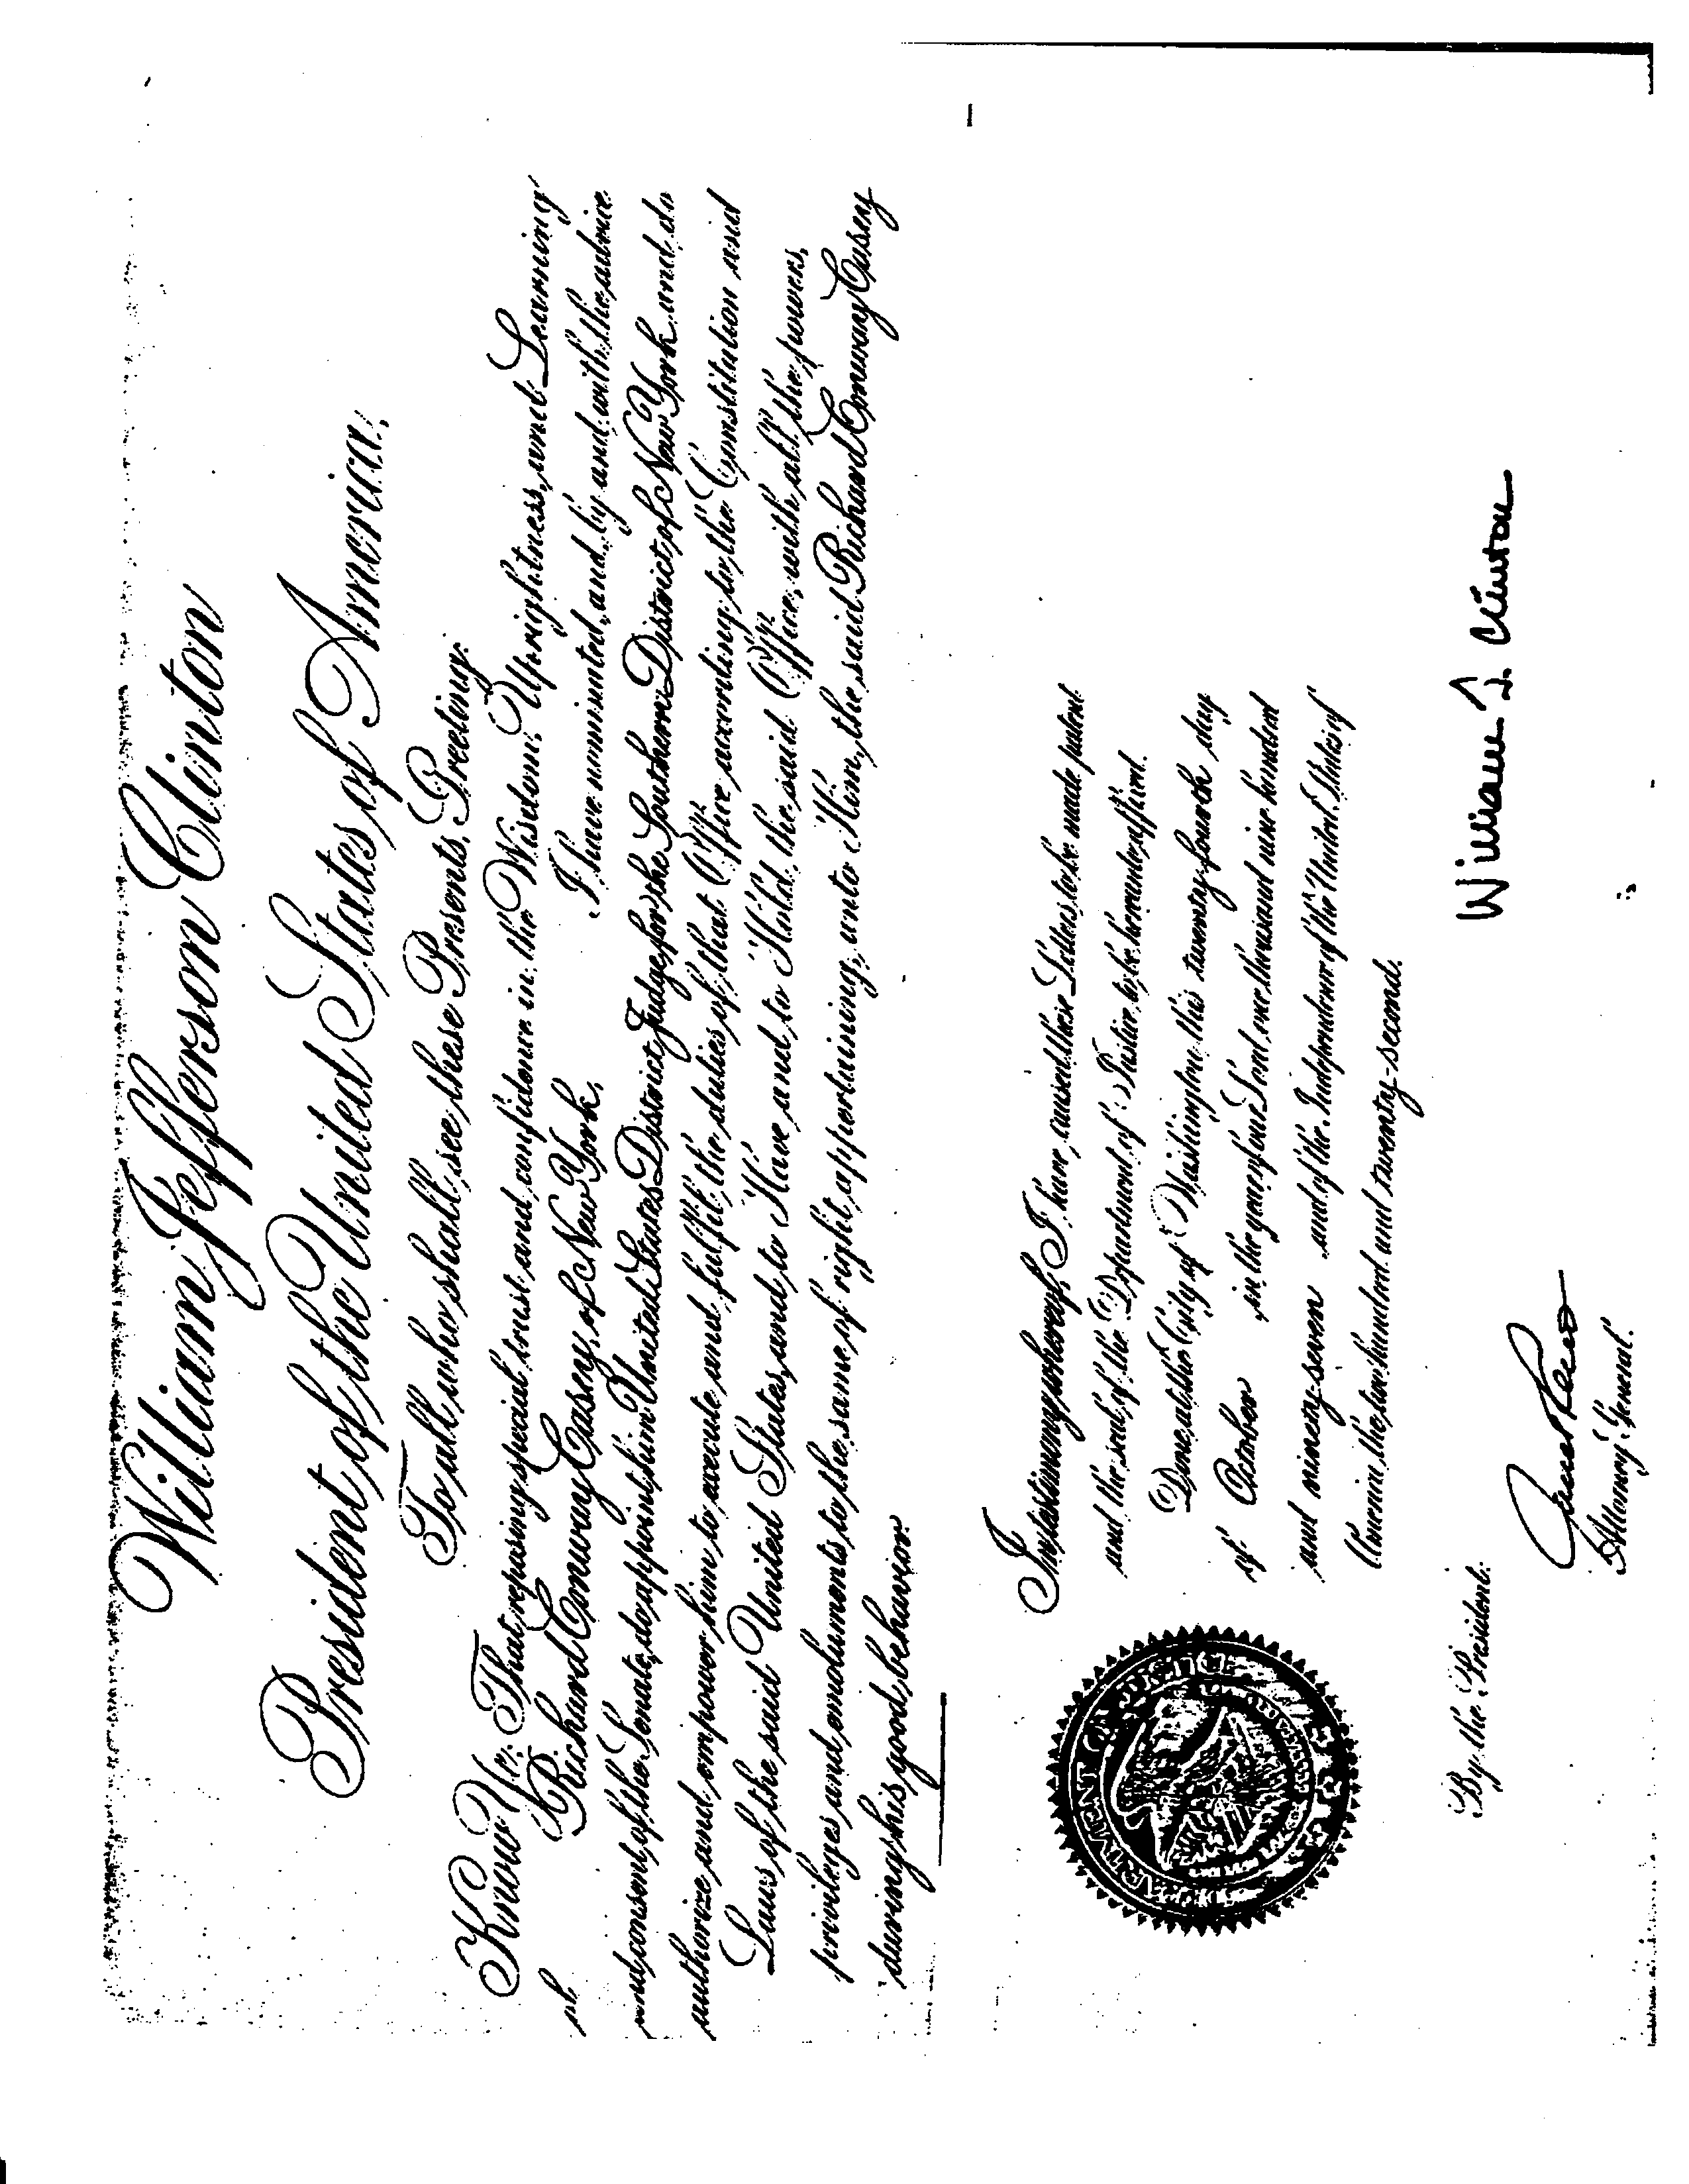 William Jefferson Clinton
President of the United States of America,
To all who shall see these Presents, Greeting:
Know Ye: That reposing special trust and confidence in the Wisdom, Uprightness, and Learning
of Richard Conway Casey, of New York, I have nominated, and, by and with the advice
and consent of the Senate, do appoint him United States District Judge for the Southern District of New York and do
authorize and empower him to execute and fulfil the duties of that Office according to the Constitution and
Laws of the said United States, and to Have and to Hold the said Office, with all the powers,
privileges and emoluments to the same of right appertaining, unto Him, the said Richard Conway Casey
during his good behavior.
In testimony whereof, I have caused these Letters to be made patent
and the seal of the Department of Justice to be hereunto affixed.
Done at the City of Washington this twenty-fourth day
of October in the year of our Lord one thousand nine hundred
and ninety-seven and of the Independence of the United States of
America the two hundred and twenty-second.
DEPARTMENT OF JUSTICE
William J. Clinton
By the President:
Janet Reno
Attorney General.